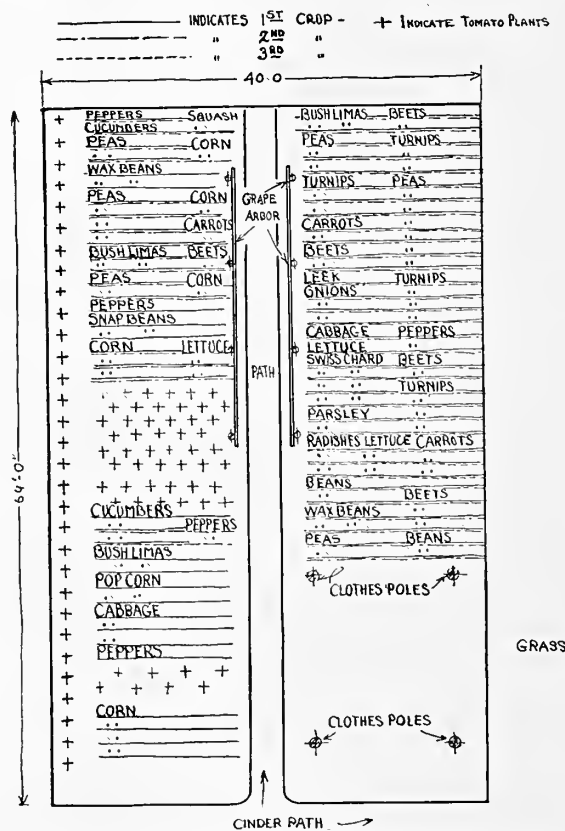 INDICATES 1ST CROP - + INDICATE TOMATO PLANTS
" 2ND "
" 3RD "
40.0
64'-0"
PEPPERS SQUASH
CUCUMBERS " "
PEAS CORN
" " " "
WAX BEANS
" " " "
PEAS CORN
" " " "
" " CARROTS
" " " "
BUSH LIMAS BEETS
" " " " " "
PEAS CORN
" " " "
PEPPERS
SNAP BEANS
" " " "
CORN LETTUCE
" " " "
" " " "
CUCUMBERS
" " PEPPERS
" " " "
BUSH LIMAS
" " " "
POP CORN
" " " "
CABBAGE
" "
PEPPERS
CORN
" "
" "
" "
GRAPE
ARBOR
PATH
BUSH LIMAS BEETS
" " " " " "
PEAS TURNIPS
" " " "
" " " "
TURNIPS PEAS
" " " "
" " " "
CARROTS " "
" " " "
BEETS " "
" " " "
LEEK TURNIPS
GNIONS " "
" " " "
CABBAGE PEPPERS
LETTUCE " "
SWISS CHARD BEETS
" " " " " "
" " " " TURNIPS
" " " " " "
PARSLEY " "
" " " "
RADISHES LETTUCE CARROTS
" " " " " "
" " " "
BEANS " "
" " BEETS
WAX BEANS " "
" " " " " "
PEAS BEANS
" " " "
CLOTHES POLES
GRASS
CLOTHES POLES
CINDER PATH